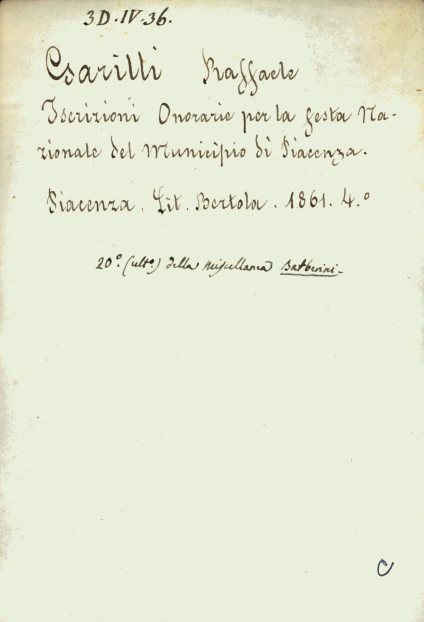 3D.IV.36.
Csarilli Raffaele
Iscrizioni Onorarie per la festa Na-
zionale del Municipio di Piacenza.
Piacenza. Lit. Bertola. 1861. 4.°
20°. (ult°.) della Miscellanea Barberini-
C